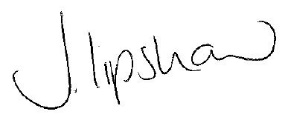 J. lipshaw